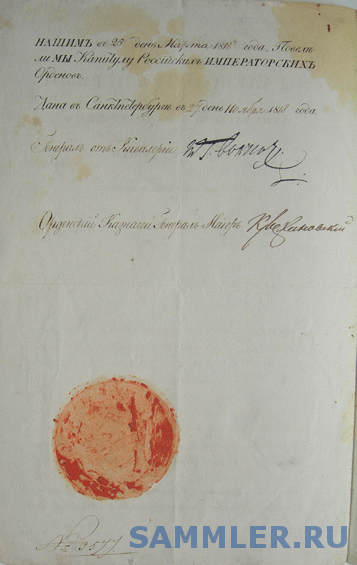 НАШИМЪ въ 25 день Марта 1818 года, Повелѣ-
ли МЫ Капитулу Россійскихъ ИМПЕРАТОРСКИХЪ
Орденовъ.
Дана въ Санктпетербургѣ въ 27 день Ноября 1818 года.
Генералъ отъ Кавалеріи
Орденскій Казначей Генералъ-Маіоръ
SAMMLER.RU